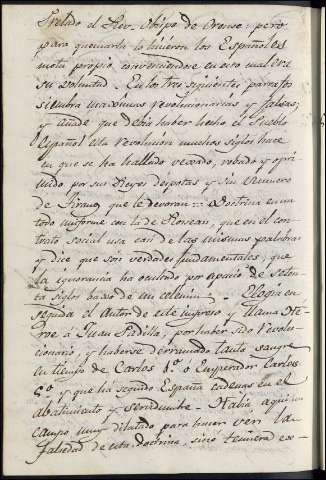 Preludo el Rev. Obispo de Orense; pero
para quemarla lo hicieron los Españoles
motu proprio, convenciendose en esto qual era
su voluntad. En los tres siguientes parrafos
siembra maximas revolucionarias y falsas;
y añade que debia haber hecho el Pueblo
Español esta revolucion muchos siglos hace
en que se ha hallado vexado, robado y opri-
mido por sus Reyes déspotas y sin número
de Tiranos que le devoran :: Doctrina en un
todo uniforme con la de Roseau, que en el con-
trato Social usa casi de las mismas palabras
y dice que son verdades fundamentales, que
la ignorancia ha ocultado por espacio de seten-
ta siglos baxo de un celemin. Elogia en
seguida el Autor de este impreso y llama He-
roe á Juan Padilla, por haber sido Revolu-
cionario, y haberse derramado tanto sangre
en tiempo de Carlos 1º. o Emperador Carlos
5º. y que ha seguido España cadenas en el
abatimiento y servidumbre. Habia aqui un
campo muy dilatado para hacer ver la
falsedad de esta doctrina, sinó temiera ex-